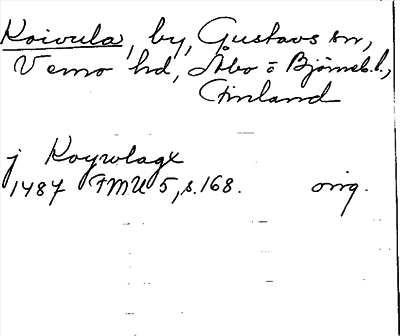 Koivula, by, Gustavs sn,
Vemo hd, Åbo o Björneb. l.,
Finland
j Koywlax
1487 FMU 5, s. 168. orig.